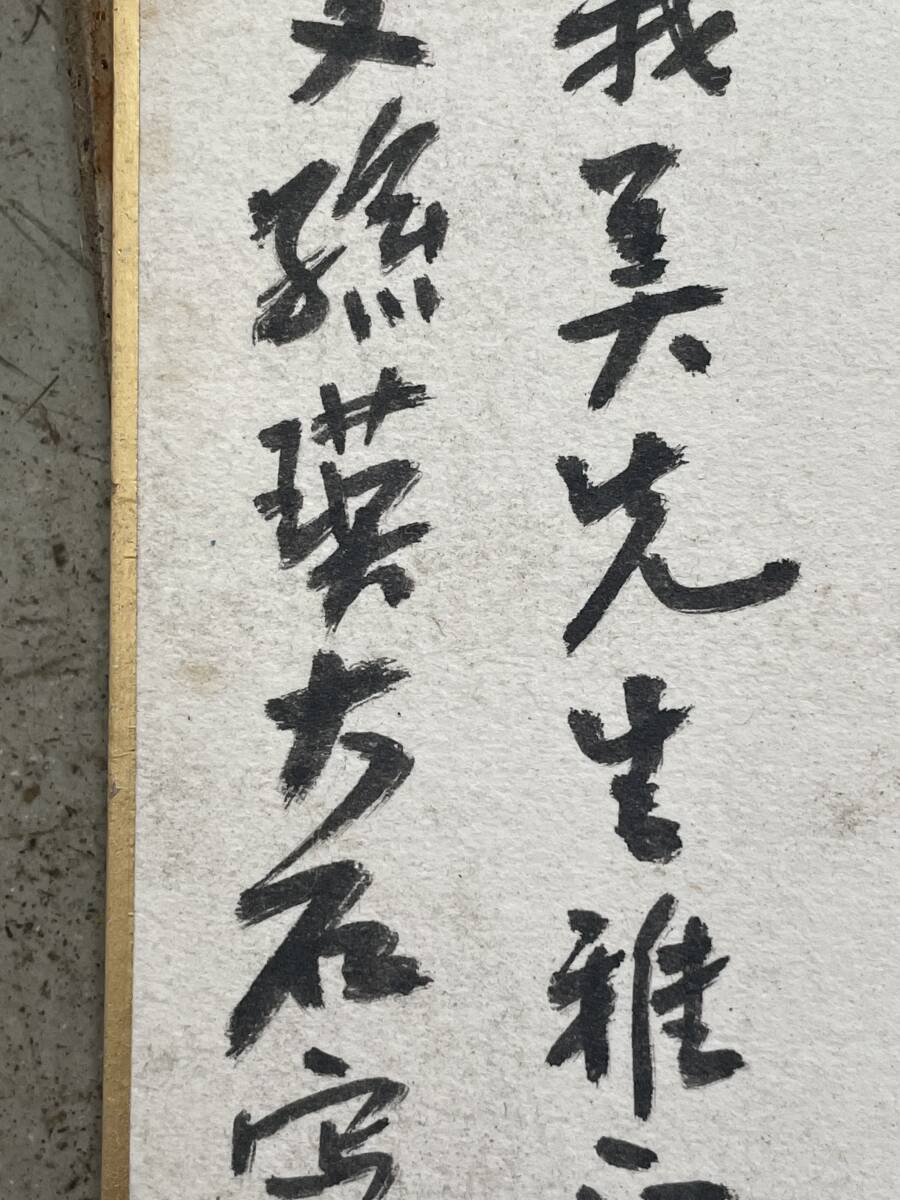 我美先生雅
孫瑛大石写